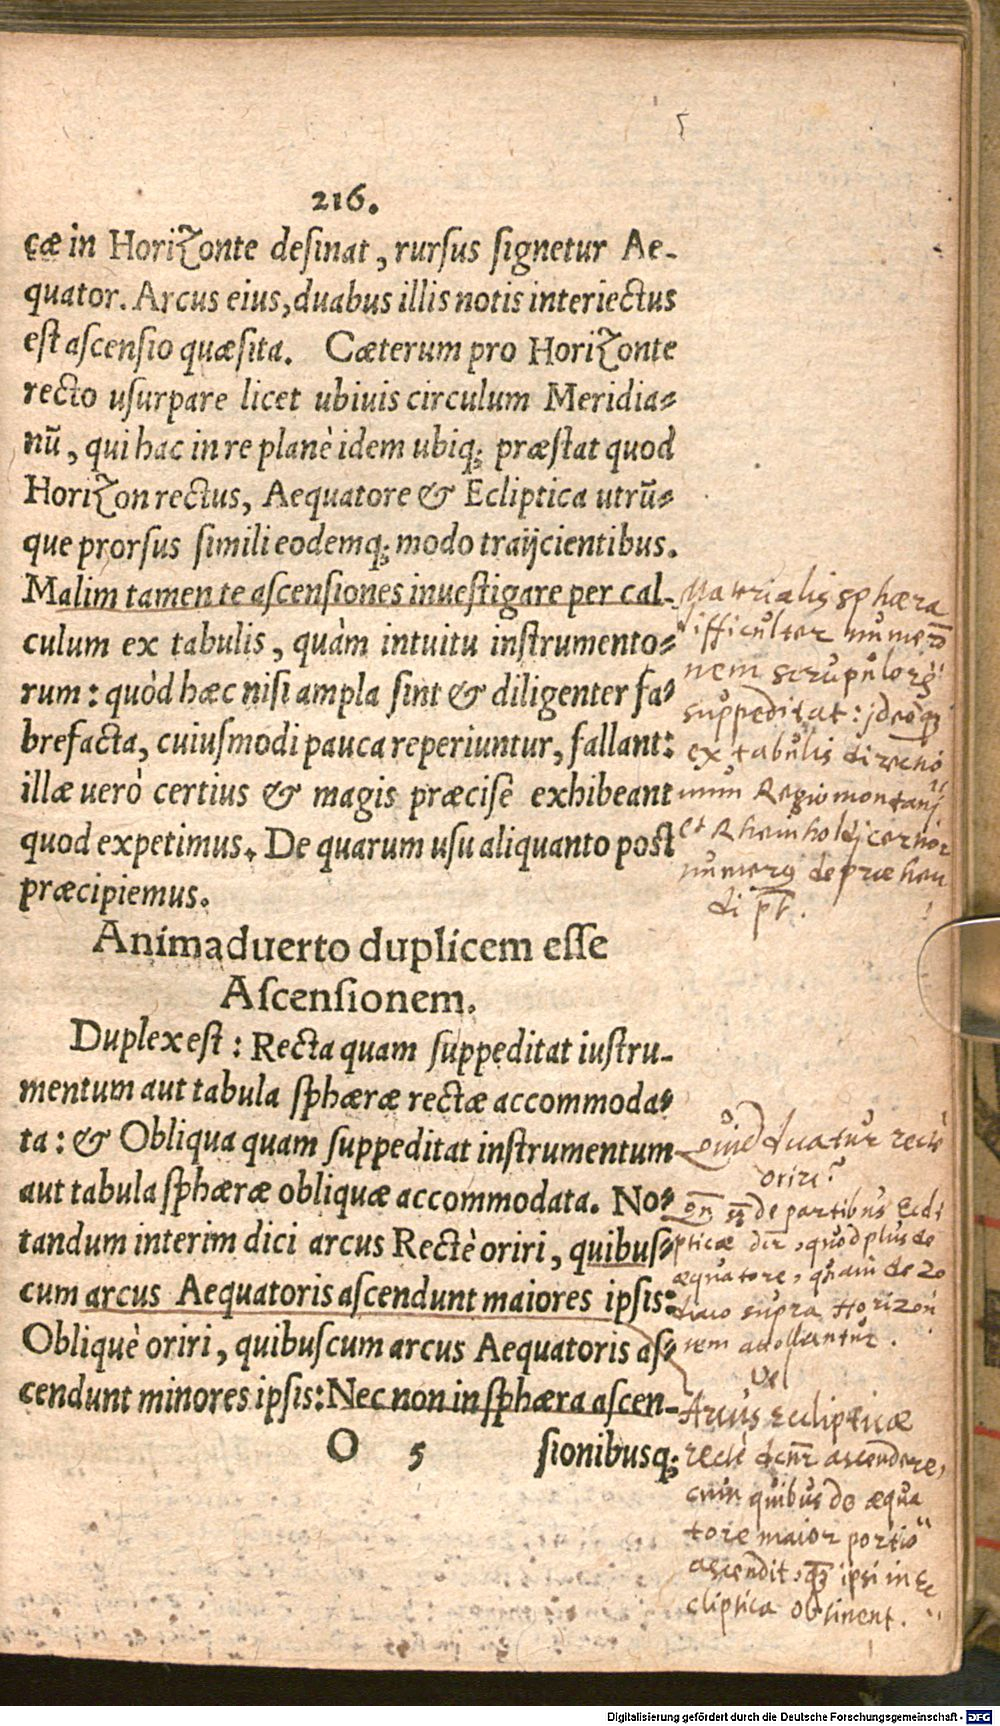 216.
cæ in Horizonte desinat, rursus signetur Ae-
quator. Arcus eius, duabus illis notis interiectus
est ascensio quæsita. Cæterum pro Horizonte
recto usurpare licet ubiuis circulum Meridia-
nū, qui hac in re planè idem ubiq; præstat quod
Horizon rectus, Aequatore & Ecliptica utrū-
que prorsus simili eodemq; modo traijcientibus.
Malim tamen te ascensiones inuestigare per cal-
culum ex tabulis, quàm intuitu instrumento-
rum: quòd hæc nisi ampla sint & diligenter fa-
brefacta, cuiusmodi pauca reperiuntur, fallant:
illæ uerò certius & magis præcisè exhibeant
quod expetimus. De quarum usu aliquanto post
præcipiemus.
Animaduerto duplicem esse
Ascensionem.
Duplex est: Recta quam suppeditat iustru-
mentum aut tabula sphæræ rectæ accommoda-
ta: & Obliqua quam suppeditat instrumentum
aut tabula sphæræ obliquæ accommodata. No-
tandum interim dici arcus Rectè oriri, quibus-
cum arcus Aequatoris ascendunt maiores ipsis:
Obliquè oriri, quibuscum arcus Aequatoris as-
cendunt minores ipsis: Nec non in sphæra ascen-
O 5 sionibusq;
Matrialis sphæra
difficulter numerō
nem scrupulorū
suppeditat: ideoq;
ex tabulis directio
num Regiomontanj
et Rheinholdj
numerus
di pt.
Quid dicatur recte
oriri?
de partibus Ecli
pticæ dir, quod plus de
æquatore, quam de Zo
diaco supra Horizon
tem attollantur.
Vel
Arcus Eclipticæ
recte dcnr ascendere,
cum quibus de æqua
tore maior portio
ascendit, ipsi in Ec
cliptica obtinent.
Digitalisierung gefördert durch die Deutsche Forschungsgemeinschaft - DFG